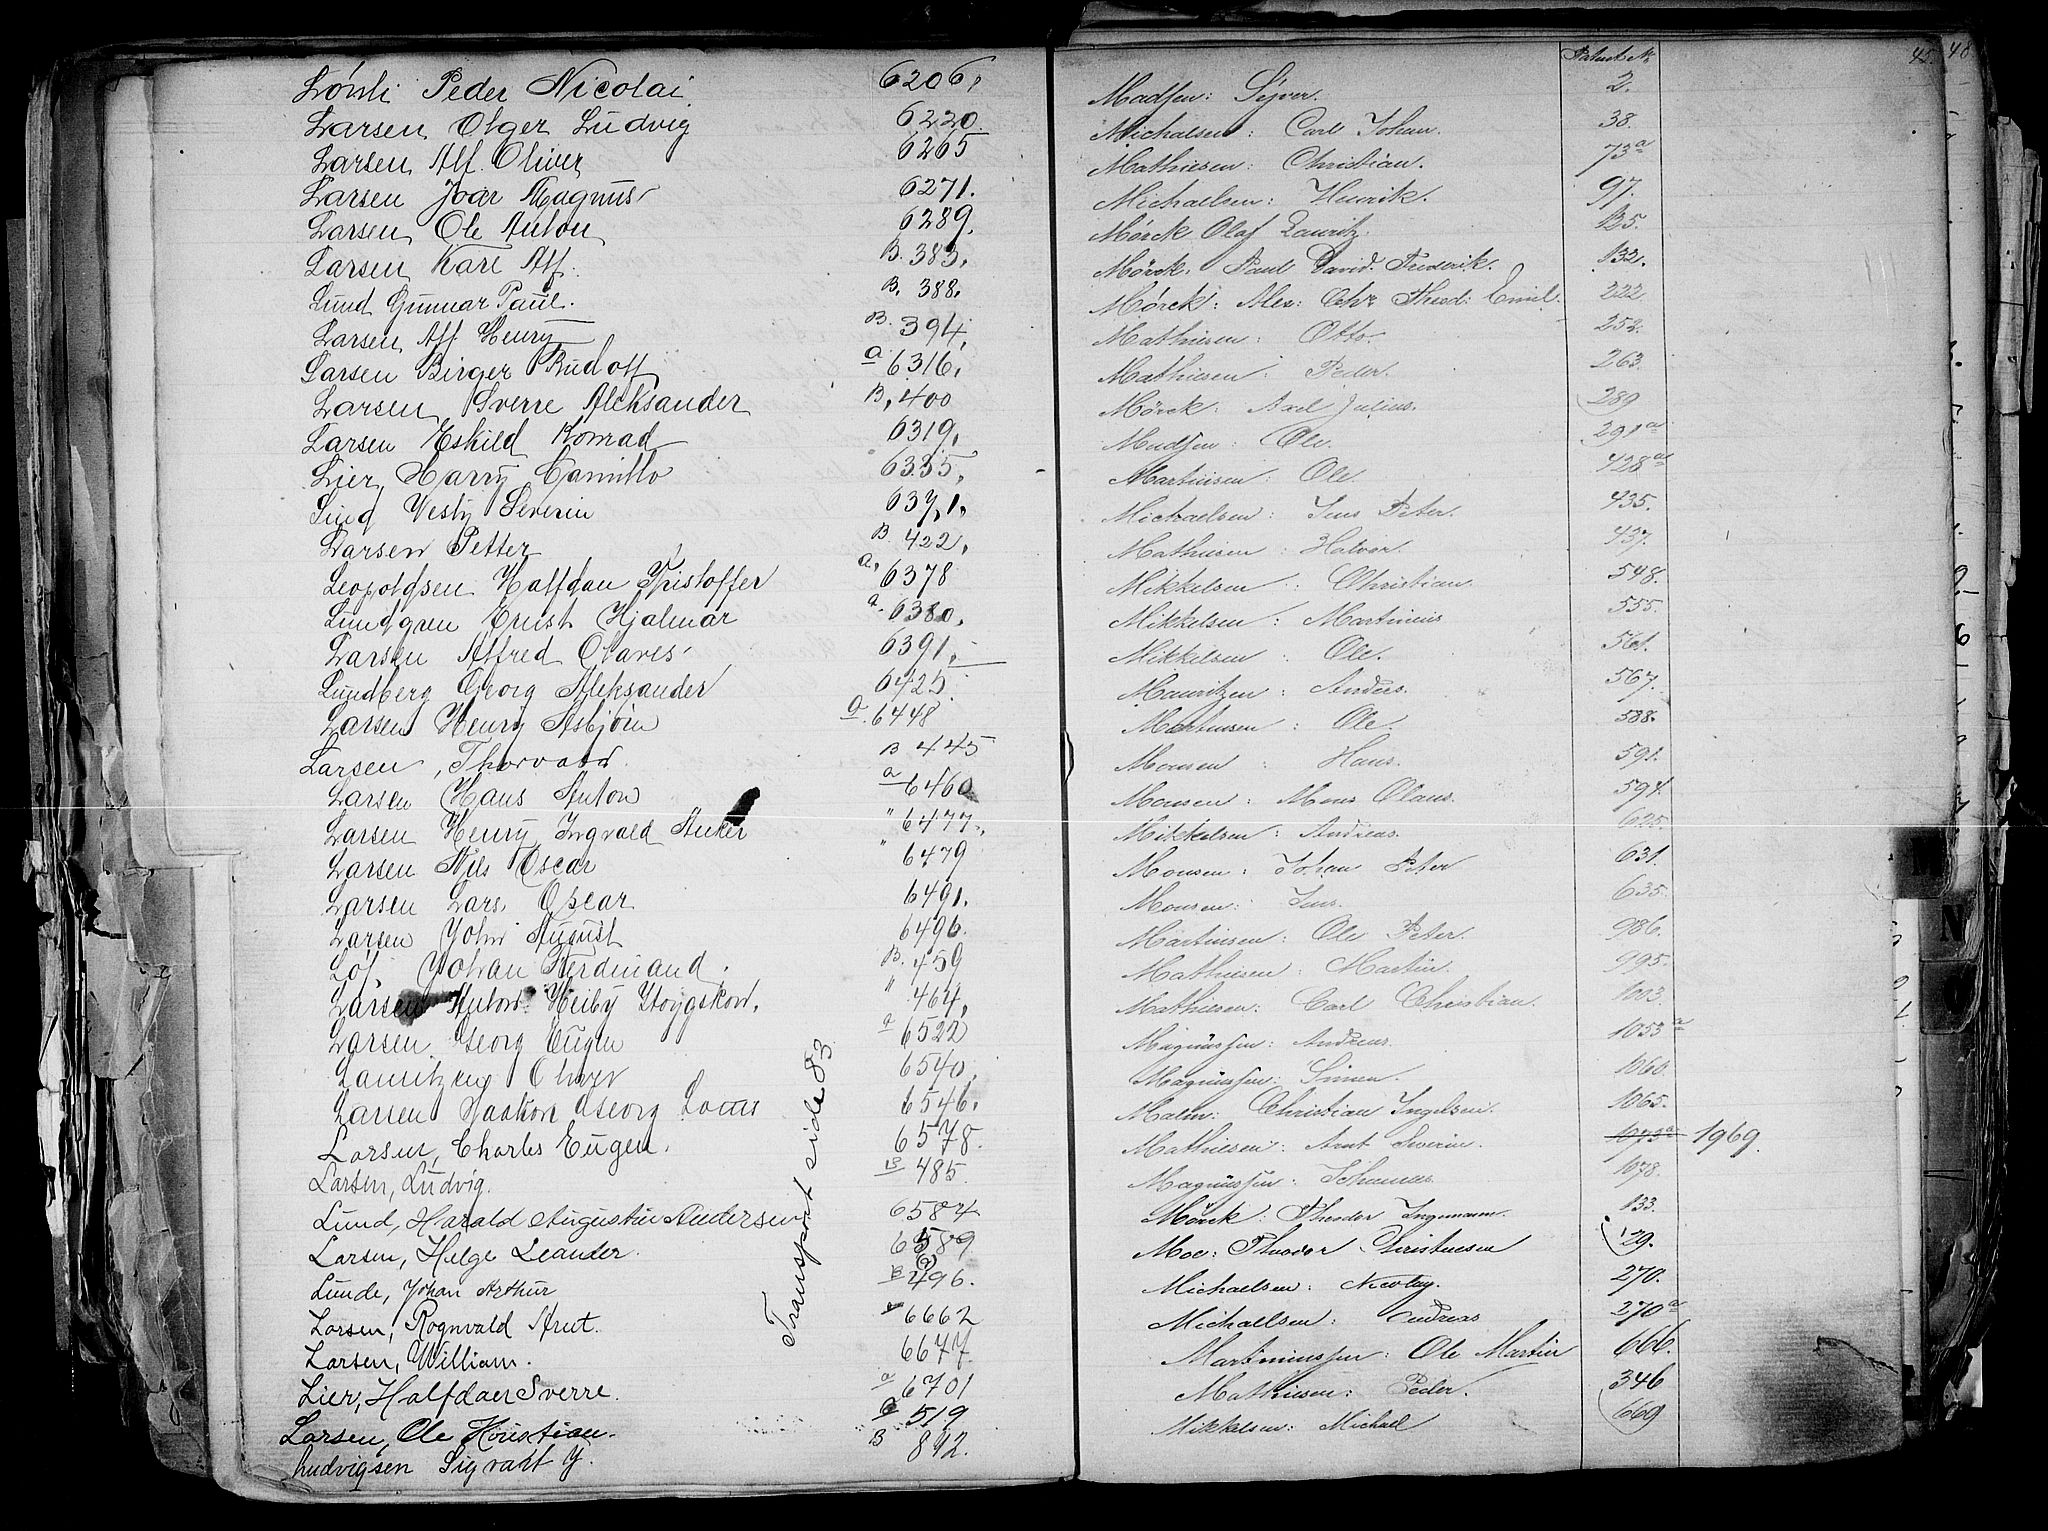 Lönli Peder Nicolai 6206.
Larsen Olger Ludvig 6220.
Larsen Alf Oliver 6265
Larsen Joar Magnus 6271.
Larsen Ole Anton 6289.
Larsen Karl Alf. B. 383.
Lund Gunnar Paul. B. 388.
Larsen Alf Henry B. 394.
Larsen Birger Rudolf a 6316.
Larsen Sverre Aleksander B. 400
Larsen Eskild Konrad 6319.
Lier Harry Camillo 6335.
Lund Vesty Severin 6371.
Larsen Petter B. 422.
Leopoldsen Halfdan Kristoffer a. 6378
Lundgren Ernst Hjalmar a. 6380.
Larsen Alfred Olaves 6391.
Lundberg Georg Aleksander 6425.
Larsen Henry Asbjörn a. 6448
Larsen, Thorvald. B 445
Larsen Hans Anton a 6460
Larsen Henry Ingvald Anker " 6477.
Larsen Nils Oscar " 6479
Larsen Lars Oscar 6491.
Larsen John August 6496.
Löf. Johan Ferdinand. B. 459
Larsen Anton Heiby " 464.
Larsen Georg Eugen a 6522
Lauritzen Oliver 6540.
Larsen Haakon Georg Louis 6546.
Larsen, Charles Eugen. 6578.
Larsen, Ludvig. B 485.
Lund, Harald Augustin Andersen 6584
Larsen, Helge Leander. 6589
Lunde, Johan Arthur B 496.
Larsen, Rognvald Arnt. 6662
Larsen, William. 6677.
Lier, Halfdan Sverre. a 6701
Larsen, Ole Kristian. B 519
Ludvigsen Sigvart J. B 842.
Transport side 83
45. 48
Patent Nr
Madsen: Sejver. 2.
Michaelsen: Carl Johan. 38.
Mathiesen: Christian. 73a
Michaelsen: Henrik. 97.
Mörck Olaf Lauritz. 125.
Mörck: Paul David Frederik. 132.
Mörck: Alex: Chr Theod: Emil. 222
Mathiesen: Otto. 252.
Mathiesen: Peder. 263.
Mörck: Axel Julius. 289
Madsen: Ole. 291a
Martinsen: Ole. 428a
Michaelsen: Jens Peter. 435.
Mathiesen: Halvor. 437.
Mikkelsen: Christian. 548.
Mikkelsen: Martinius 555.
Mikkelsen: Ole. 561.
Mauritzen: Anders. 567.
Martinsen: Ole. 588.
Monsen: Hans. 591.
Monsen: Mons Olaus. 594.
Mikkelsen: Andreas. 625.
Monsen: Johan Peter 631.
Monsen: Jens. 635.
Martinsen: Ole Peter. 986.
Mathiesen: Martin. 995.
Mathiesen: Carl Christian. 1003.
Magnussen: Andreas. 1053a
Magnussen: Simen. 1060.
Malm: Christian Ingelsen. 1065.
Mathiesen: Arnt Severin. 1073a 1969.
Magnussen: Johannes. 1078.
Mörck: Theodor Ingemann. 133.
Moe: Theodor Christensen 129.
Michaelsen: Nicolay. 270.
Michaelsen: Andreas 270a
Martiniussen: Ole Martin 666.
Mathiesen: Peder. 346
Mikkelsen: Michael 669
M
N
O